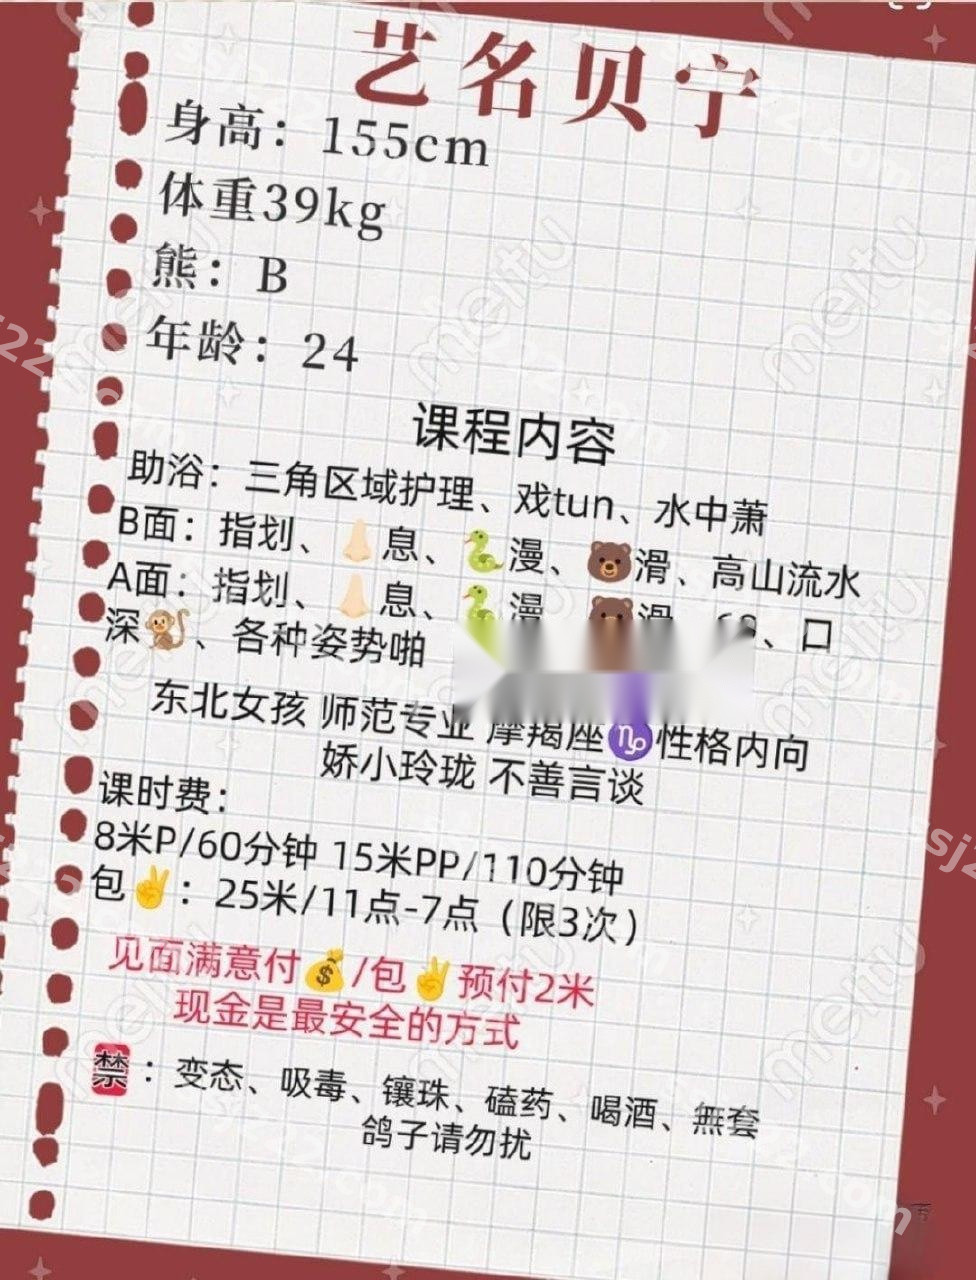 艺名贝宁
身高：155cm
体重39kg
熊：B
年龄：24
课程内容
助浴：三角区域护理、戏tun、水中萧
B面：指划、👃🏻息、🐍漫、🐻滑、高山流水
A面：指划、👃🏻息、🐍漫、🐻滑、69、口
深🐒、各种姿势啪
东北女孩 师范专业 摩羯座♑性格内向
娇小玲珑 不善言谈
课时费：
8米P/60分钟 15米PP/110分钟
包✌️：25米/11点-7点（限3次）
见面满意付💰/包✌️预付2米
现金是最安全的方式
禁：变态、吸毒、镶珠、磕药、喝酒、無套
鸽子请勿扰
meitu